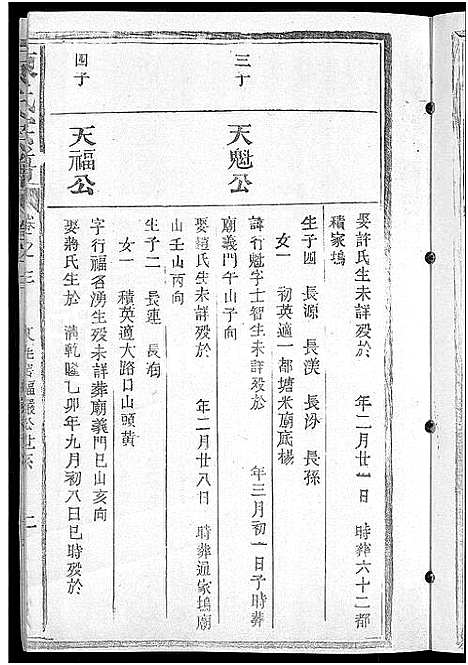 娶許氏生未詳殁於　年二月廿一日　時葬六十二都
積家塢
生子四　長源　長渼　長汾　長孫
女一　初英適一都塘米廟底楊
三丁
天魁公
諱行魁字士智生未詳殁於　年三月初一日子時葬
廟義門午山子向
娶趙氏生未詳殁於　年二月廿八日　時葬逼家塢廟
山壬山丙向
生子二　長連　長有
女一　積英適大路口山頭黃
四子
天福公
字行福名湧生殁未詳葬廟義門巳山亥向
娶蔣氏生於　清乾隆乙卯年九月初八日巳時殁於
氏宗譜
卷之三
二